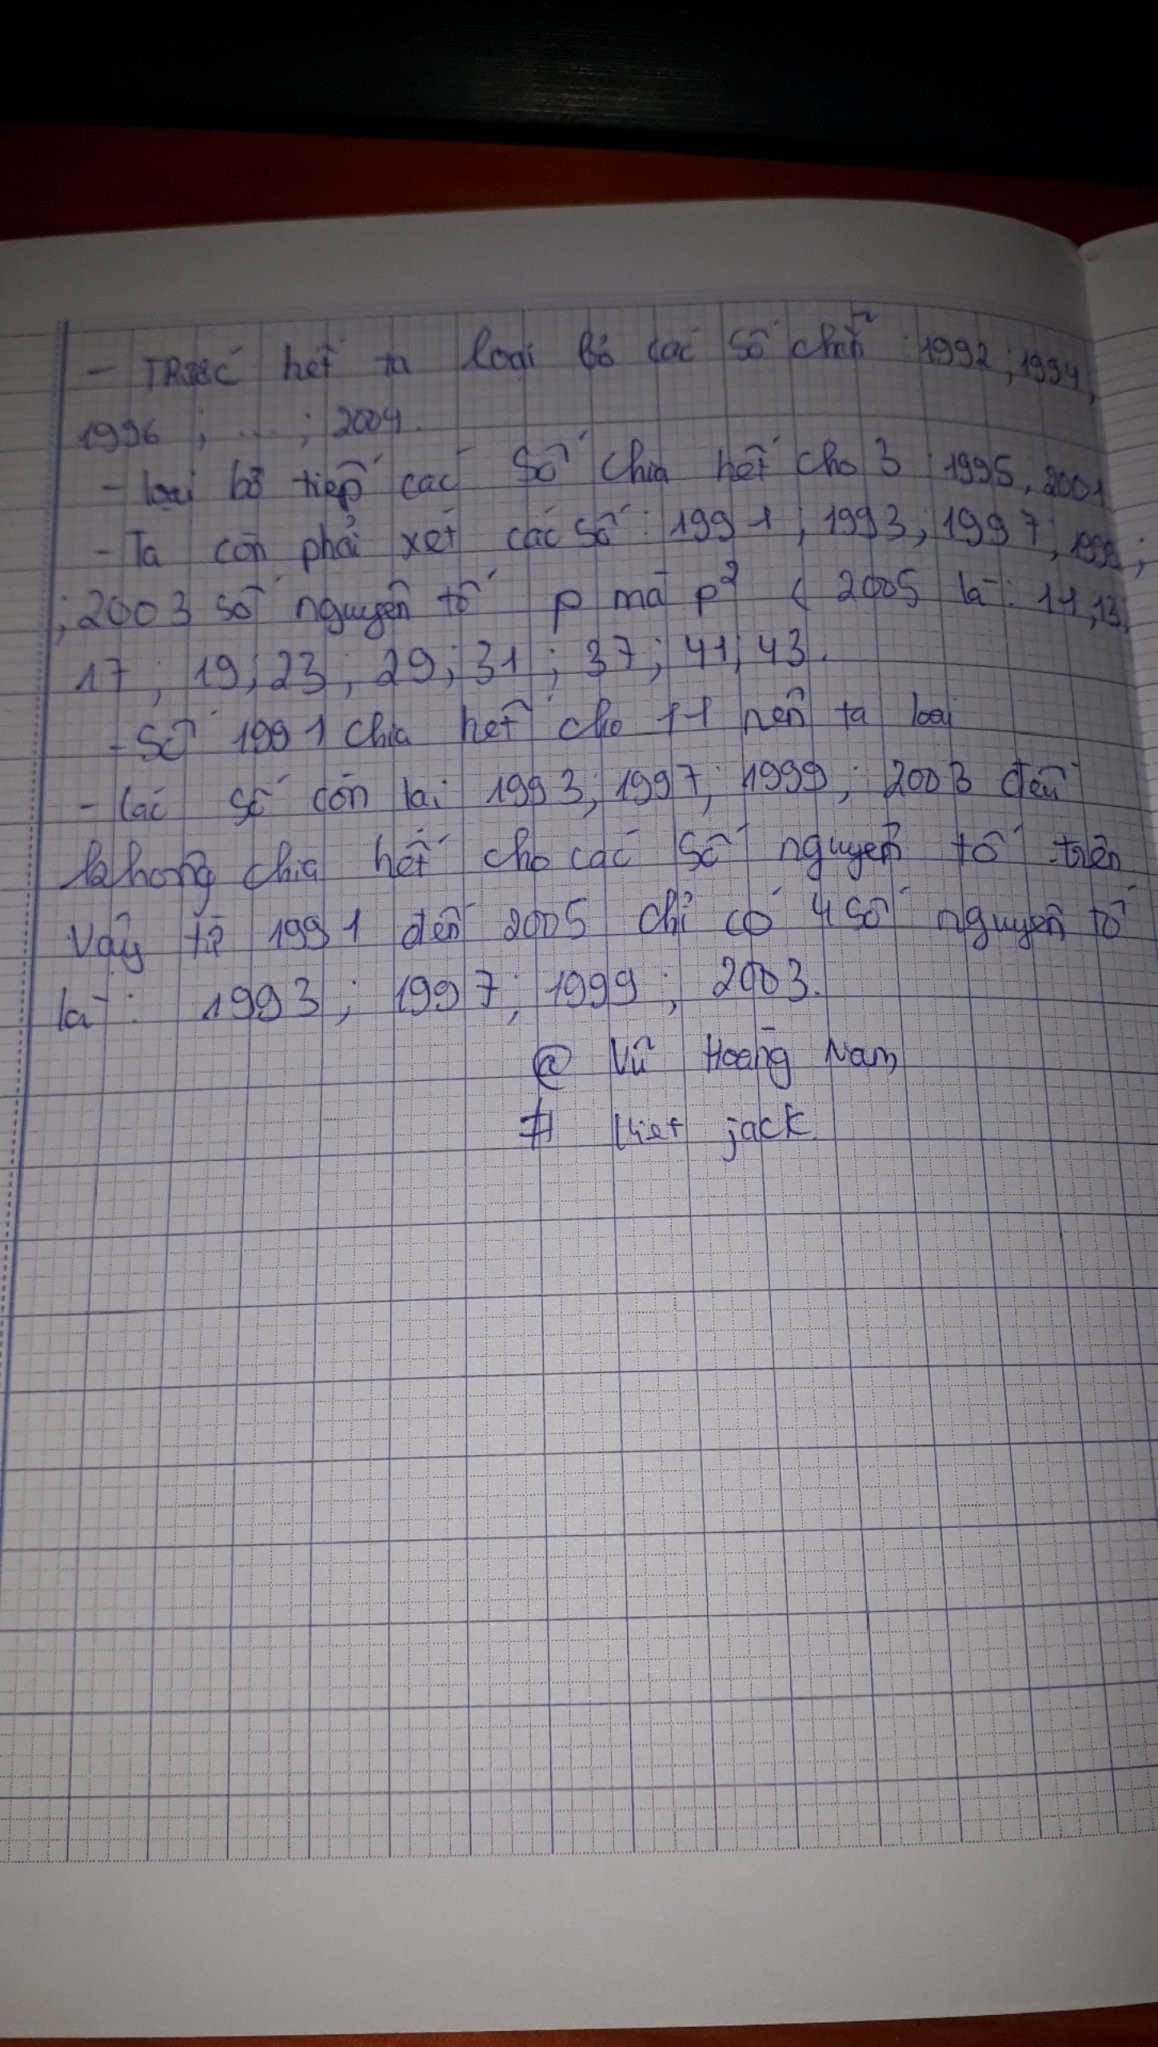 - Trước hết ta loại bỏ các số chẵn 1992 ; 1994,
1996 ; ... ; 2004.
- loại bỏ tiếp các số chia hết cho 3 1995, 2001
- Ta còn phải xét các số : 1991 ; 1993, 1997, 1999 ;
; 2003 số nguyên tố p mà p² < 2005 là : 11, 13,
17 ; 19 ; 23 ; 29 ; 31 ; 37 ; 41 ; 43.
- Số 1991 chia hết cho 11 nên ta loại
- Các số còn lại 1993 ; 1997 ; 1999 ; 2003 đều
không chia hết cho các số nguyên tố trên
Vậy từ 1991 đến 2005 chỉ có 4 số nguyên tố
là : 1993 ; 1997 ; 1999 ; 2003.
@ Vũ Hoàng Nam
# Viet jack.